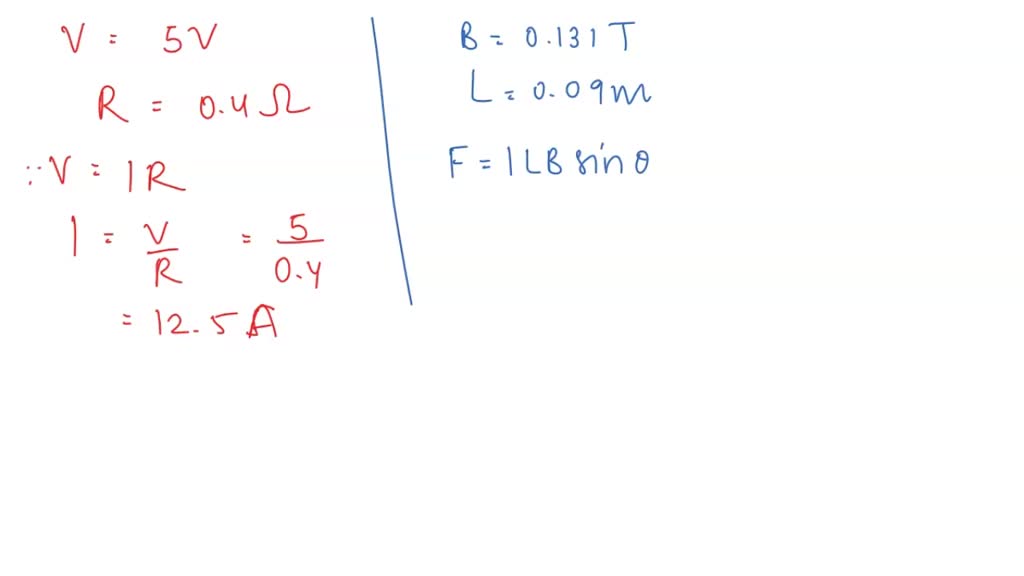 V = 5V
R = 0.4 Ω
∵ V = IR
I = V/R = 5/0.4
= 12.5 A
B = 0.131 T
L = 0.09 m
F = I L B sin θ